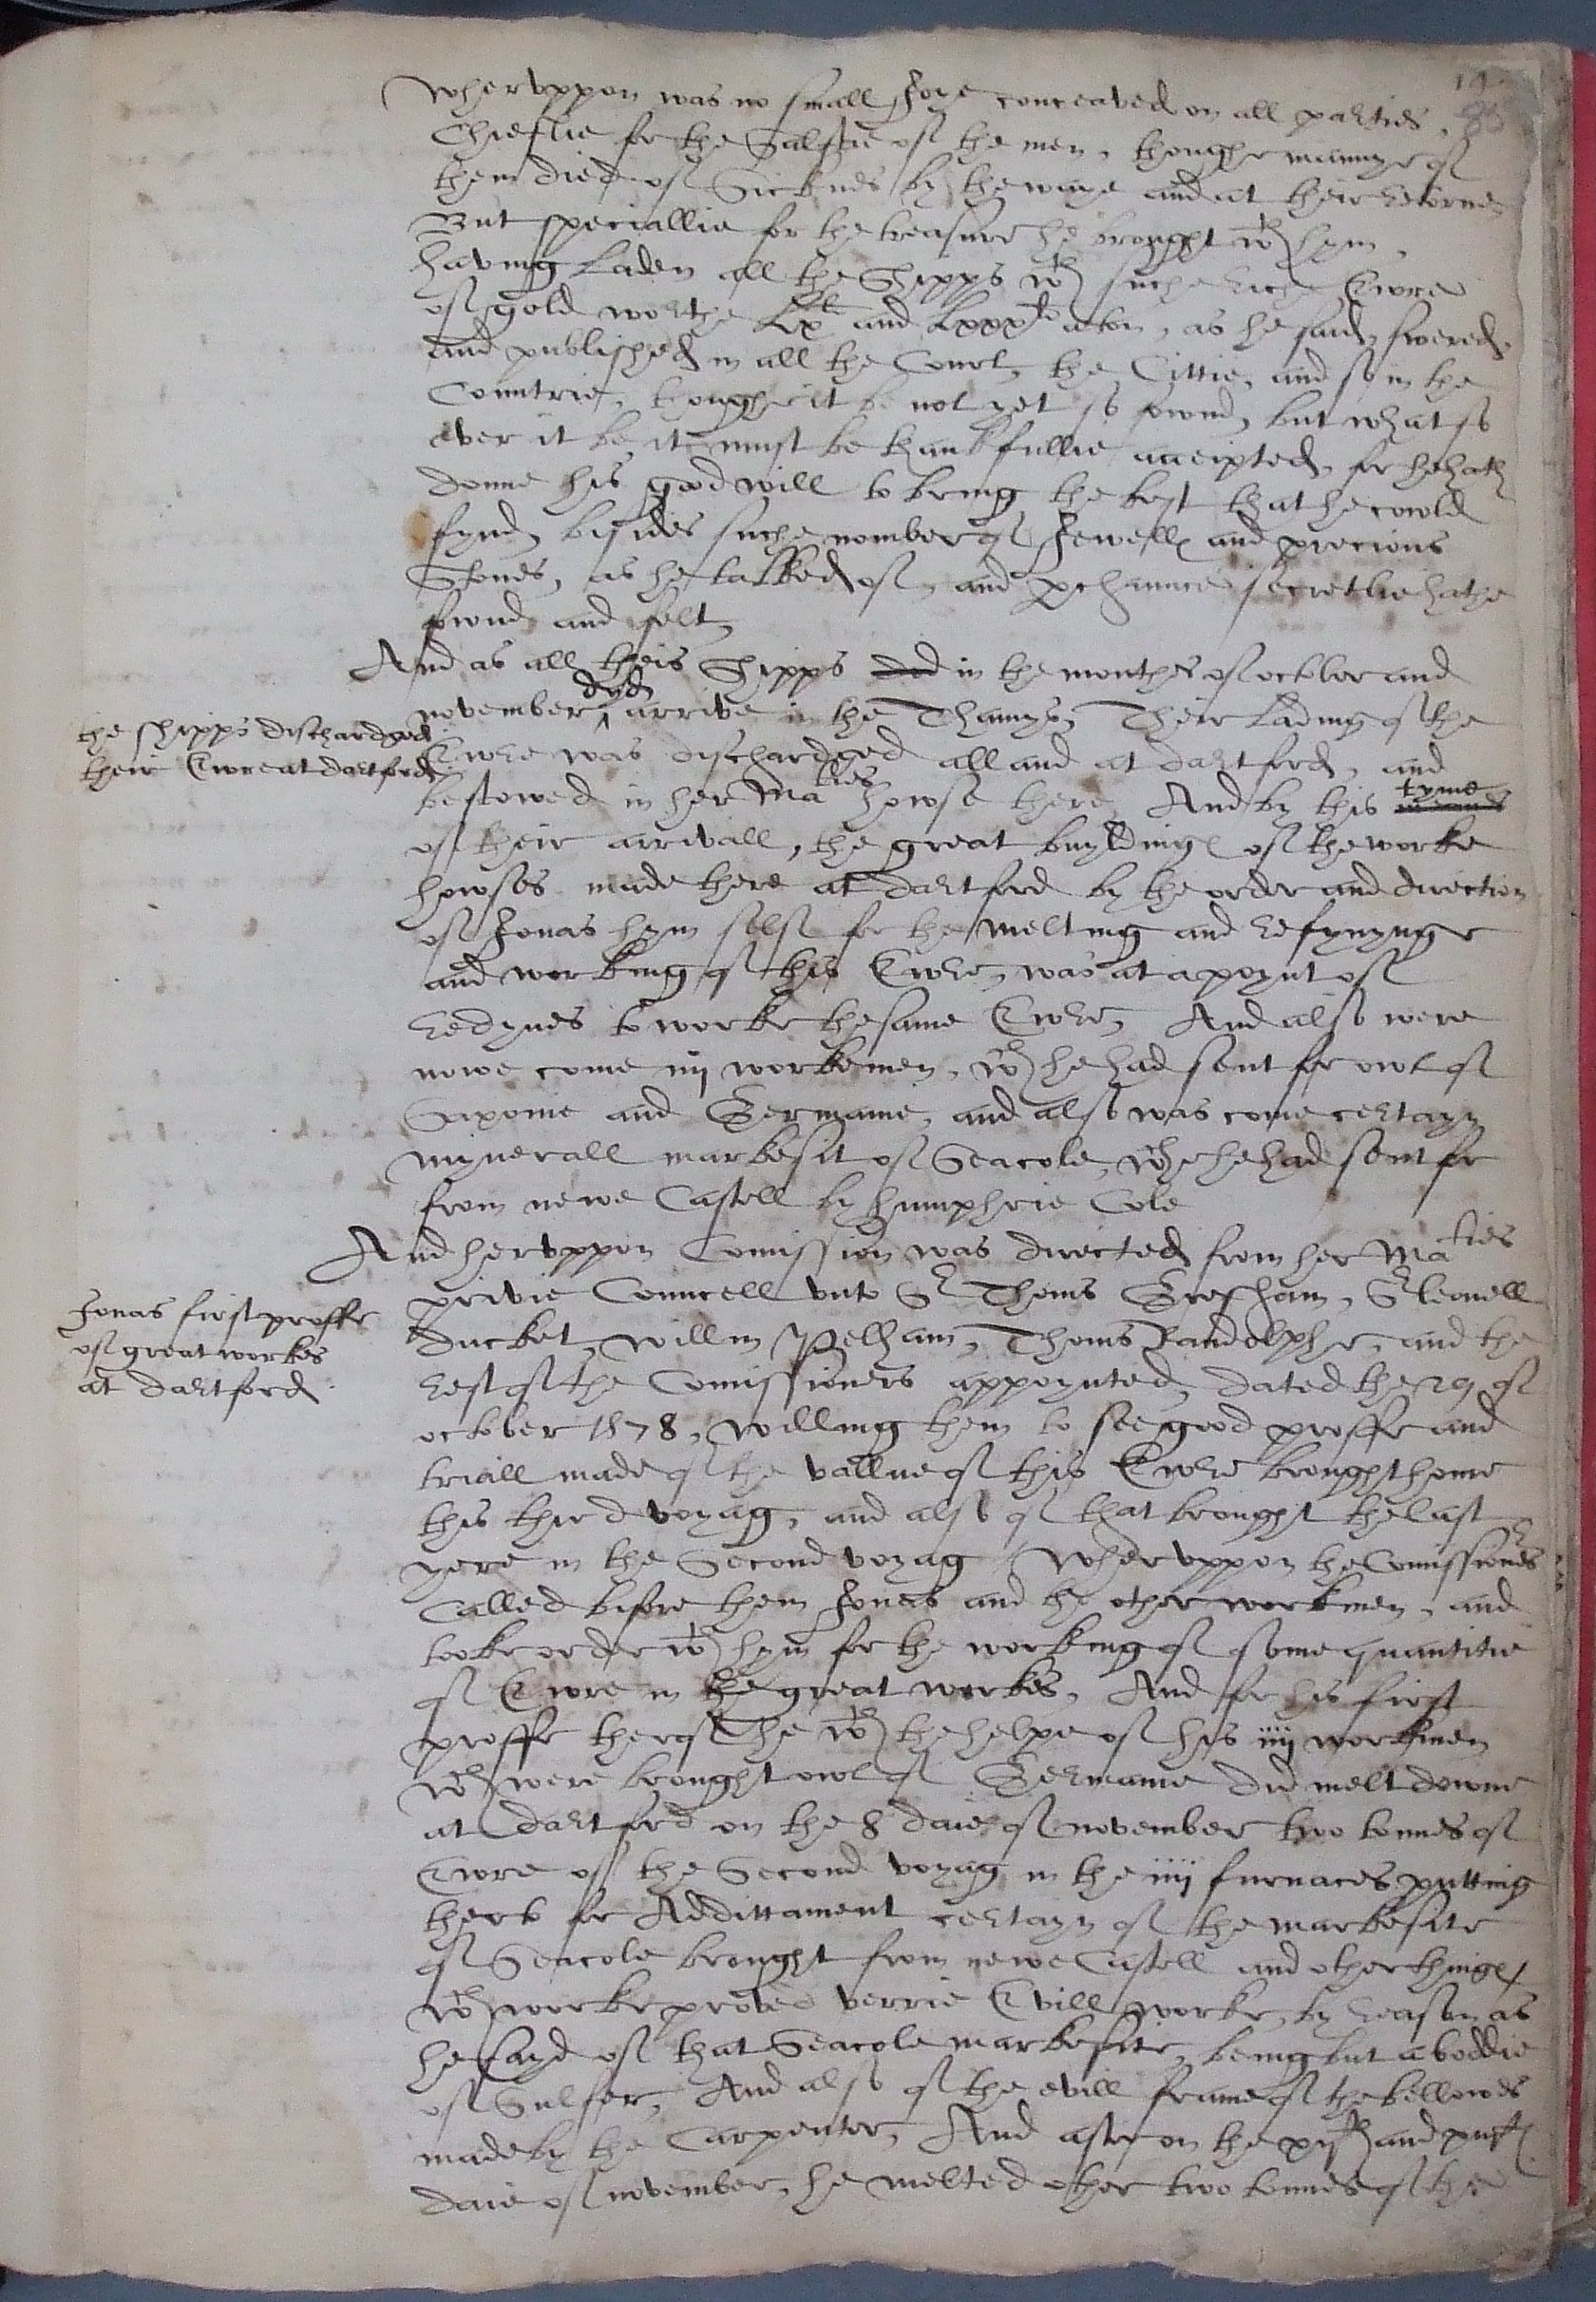 14
85
Wheruppon was no small Joye conceaved on all parties,
Chieflie for the Salftie of the men, thoughe mannye of
them died of Sicknes by the waye and at their retorne
But speciallie for the treasure he brought wth hym,
having Laden all the Shipps wth suche riche Ewre
of gold worthe lxli and lxxxli a ton, as he said, swered,
and published in all the Court, the Cittie, and so in the
Countrie, thoughe it be not yet so fownd, but what so
ever it be, it must be thankfullie accepted, for he hath
donne his good will to bring the best that he cowld
fynd, besides suche nomber of Jewells and precious
Stones, as he talked of, and perchaunce secretlie hathe
fownd and felt
And as all theis Shipps did in the monthes of october and
november dyd arrive in the Thamys, Their Lading of the
the shipps dischardged
their Ewre at dartford
Ewre was dischardged all and at dartford, and
bestowed in her Maties howse there, And by this meanes tyme
of their arrivall, the great buyldings of the worke
howses made there at dartford by the order and direction
of Jonas hym self for the melting and refynynge
and working of this Ewre, was at a poynt of
redynes to worke the same Ewre, And also were
nowe come iiij workemen, wch he had sent for owt of
Saxonie and Germanie, and also was come certayn
mynerall markesit of Seacole, wche he had sent for
from newe Castell by humphrie Cole
And heruppon Comission was directed from her Maties
privie Councell unto Sr Thoms Gresham, Sr Leonell
Jonas first proffe
of great workes
at dartford.
Ducket, Willm Pelham, Thoms Randolphe, and the
rest of the Comissioners appoynted, dated the 29 of
october 1578, willing them to see good proffe and
triall made of the vallue of this Ewre brought home
this third voyag, and also of that brought the last
yere in the Second voyag Wheruppon the Comissioners
Called before them Jonas and the other workmen, and
tooke order wth hym for the working of some quantitie
of Ewre in the great workes, And for his first
proffe therof he wth the helpe of his iiij workmen
wch were brought owt of Germanie did melt downe
at dartford on the 8 daie of november two tonnes of
Ewre of the Second voyag in the iiij furnaces putting
therto for Addittament certayn of the markesite
of Seacole brought from newe Castell and other things,
wch worke proved verrie Evill worke, by reason as
he sayd of that Seacole markesite, being but a boddie
of Sulfer, And also of the evill frame of the bellowes
made by the Carpenter, And after on the and
daie of november, he melted other two tonnes of the